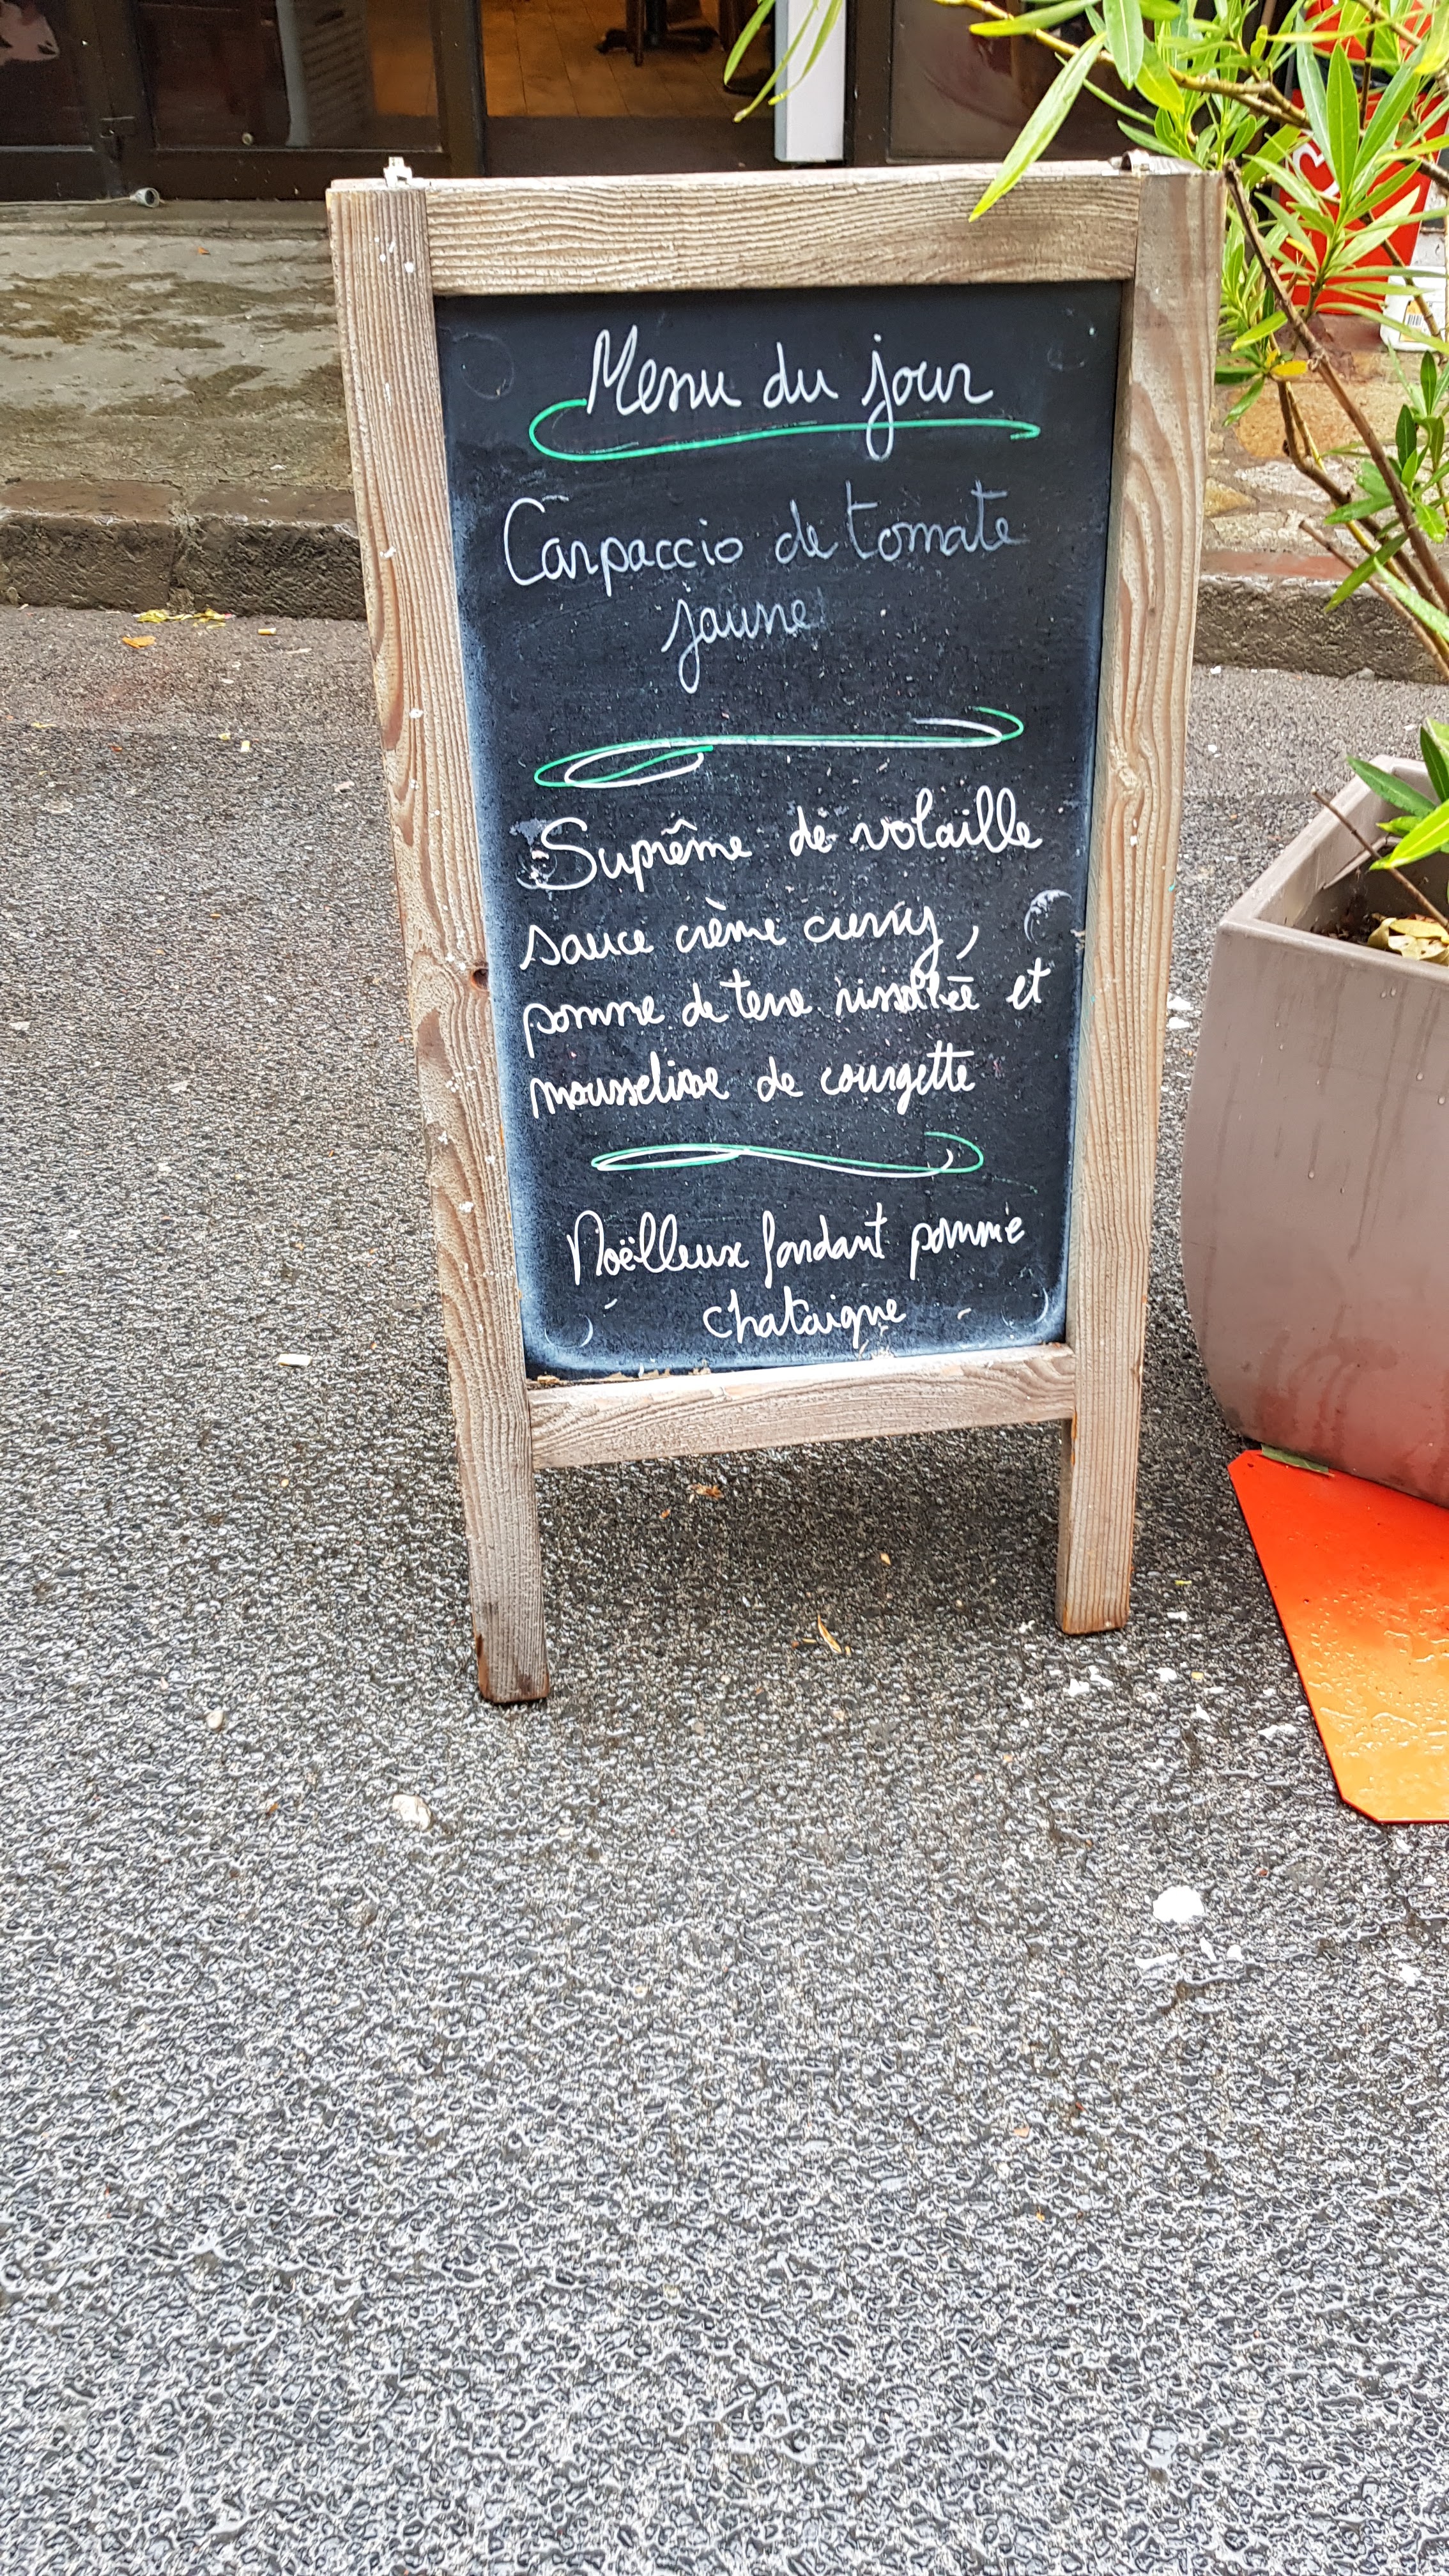 Menu du jour
Carpaccio de tomate
jaune
Suprême de volaille
sauce crème curry,
pomme de terre rissolée et
mousseline de courgette
Moëlleux fondant pomme
chataigne